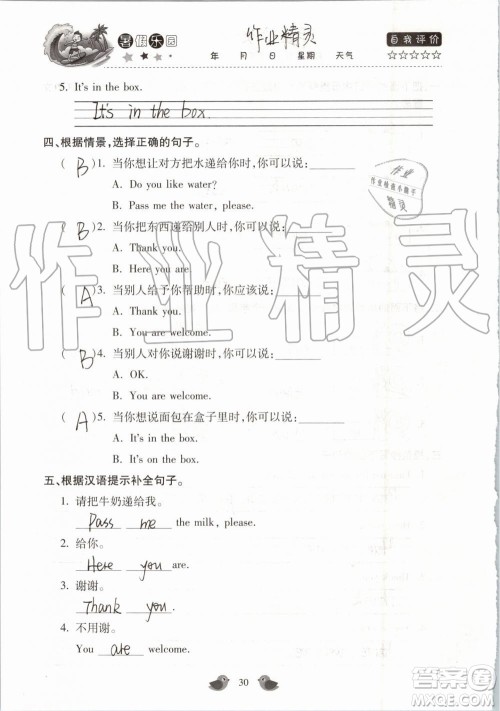 暑假乐园
作业精灵
年 月 日 星期 天气
自我评价
☆☆☆☆☆
5. It's in the box.
It's in the box.
四、根据情景,选择正确的句子。
( B )1. 当你想让对方把水递给你时,你可以说:
A. Do you like water?
B. Pass me the water, please!
( B )2. 当你把东西递给别人时,你可以说:
A. Thank you.
B. Here you are.
( A )3. 当别人给予你帮助时,你应该说:
A. Thank you.
B. You are welcome.
( B )4. 当别人对你说谢谢时,你可以说:
A. OK.
B. You are welcome.
( A )5. 当你想说面包在盒子里时,你可以说:
A. It's in the box.
B. It's on the box.
五、根据汉语提示补全句子。
1. 请把牛奶递给我。
Pass me the milk, please.
2. 给你。
Here you are.
3. 谢谢。
Thank you.
4. 不用谢。
You are welcome.
30
作业精灵
作业
精灵
答案圈
MXQE.COM